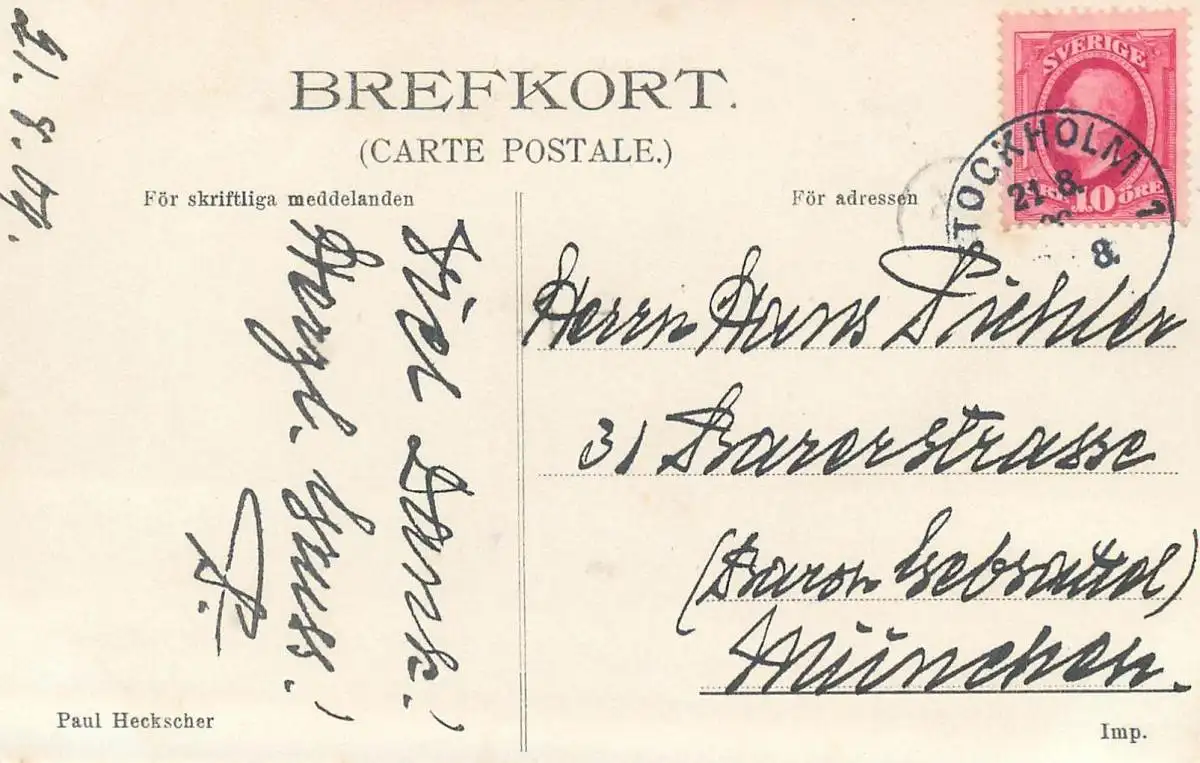 21.8.09.
BREFKORT.
(CARTE POSTALE.)
För skriftliga meddelanden
För adressen
SVERIGE
10 ÖRE
STOCKHOLM 1
21 8.
8.
Viel Dank!
Herzl. Gruss!
P.
Herrn Hans Pichler
31 Barerstrasse
(Baron Gebsattel)
München.
Paul Heckscher
Imp.